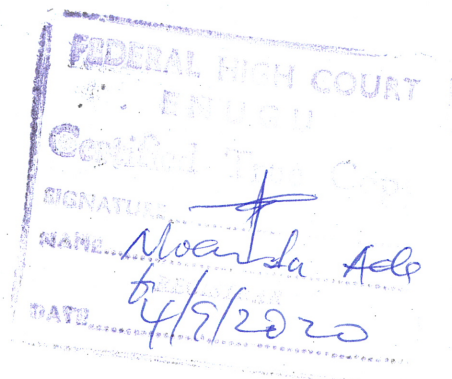 FEDERAL HIGH COURT
ENUGU
Certified True Copy
SIGNATURE
NAME
DATE 4/9/2020